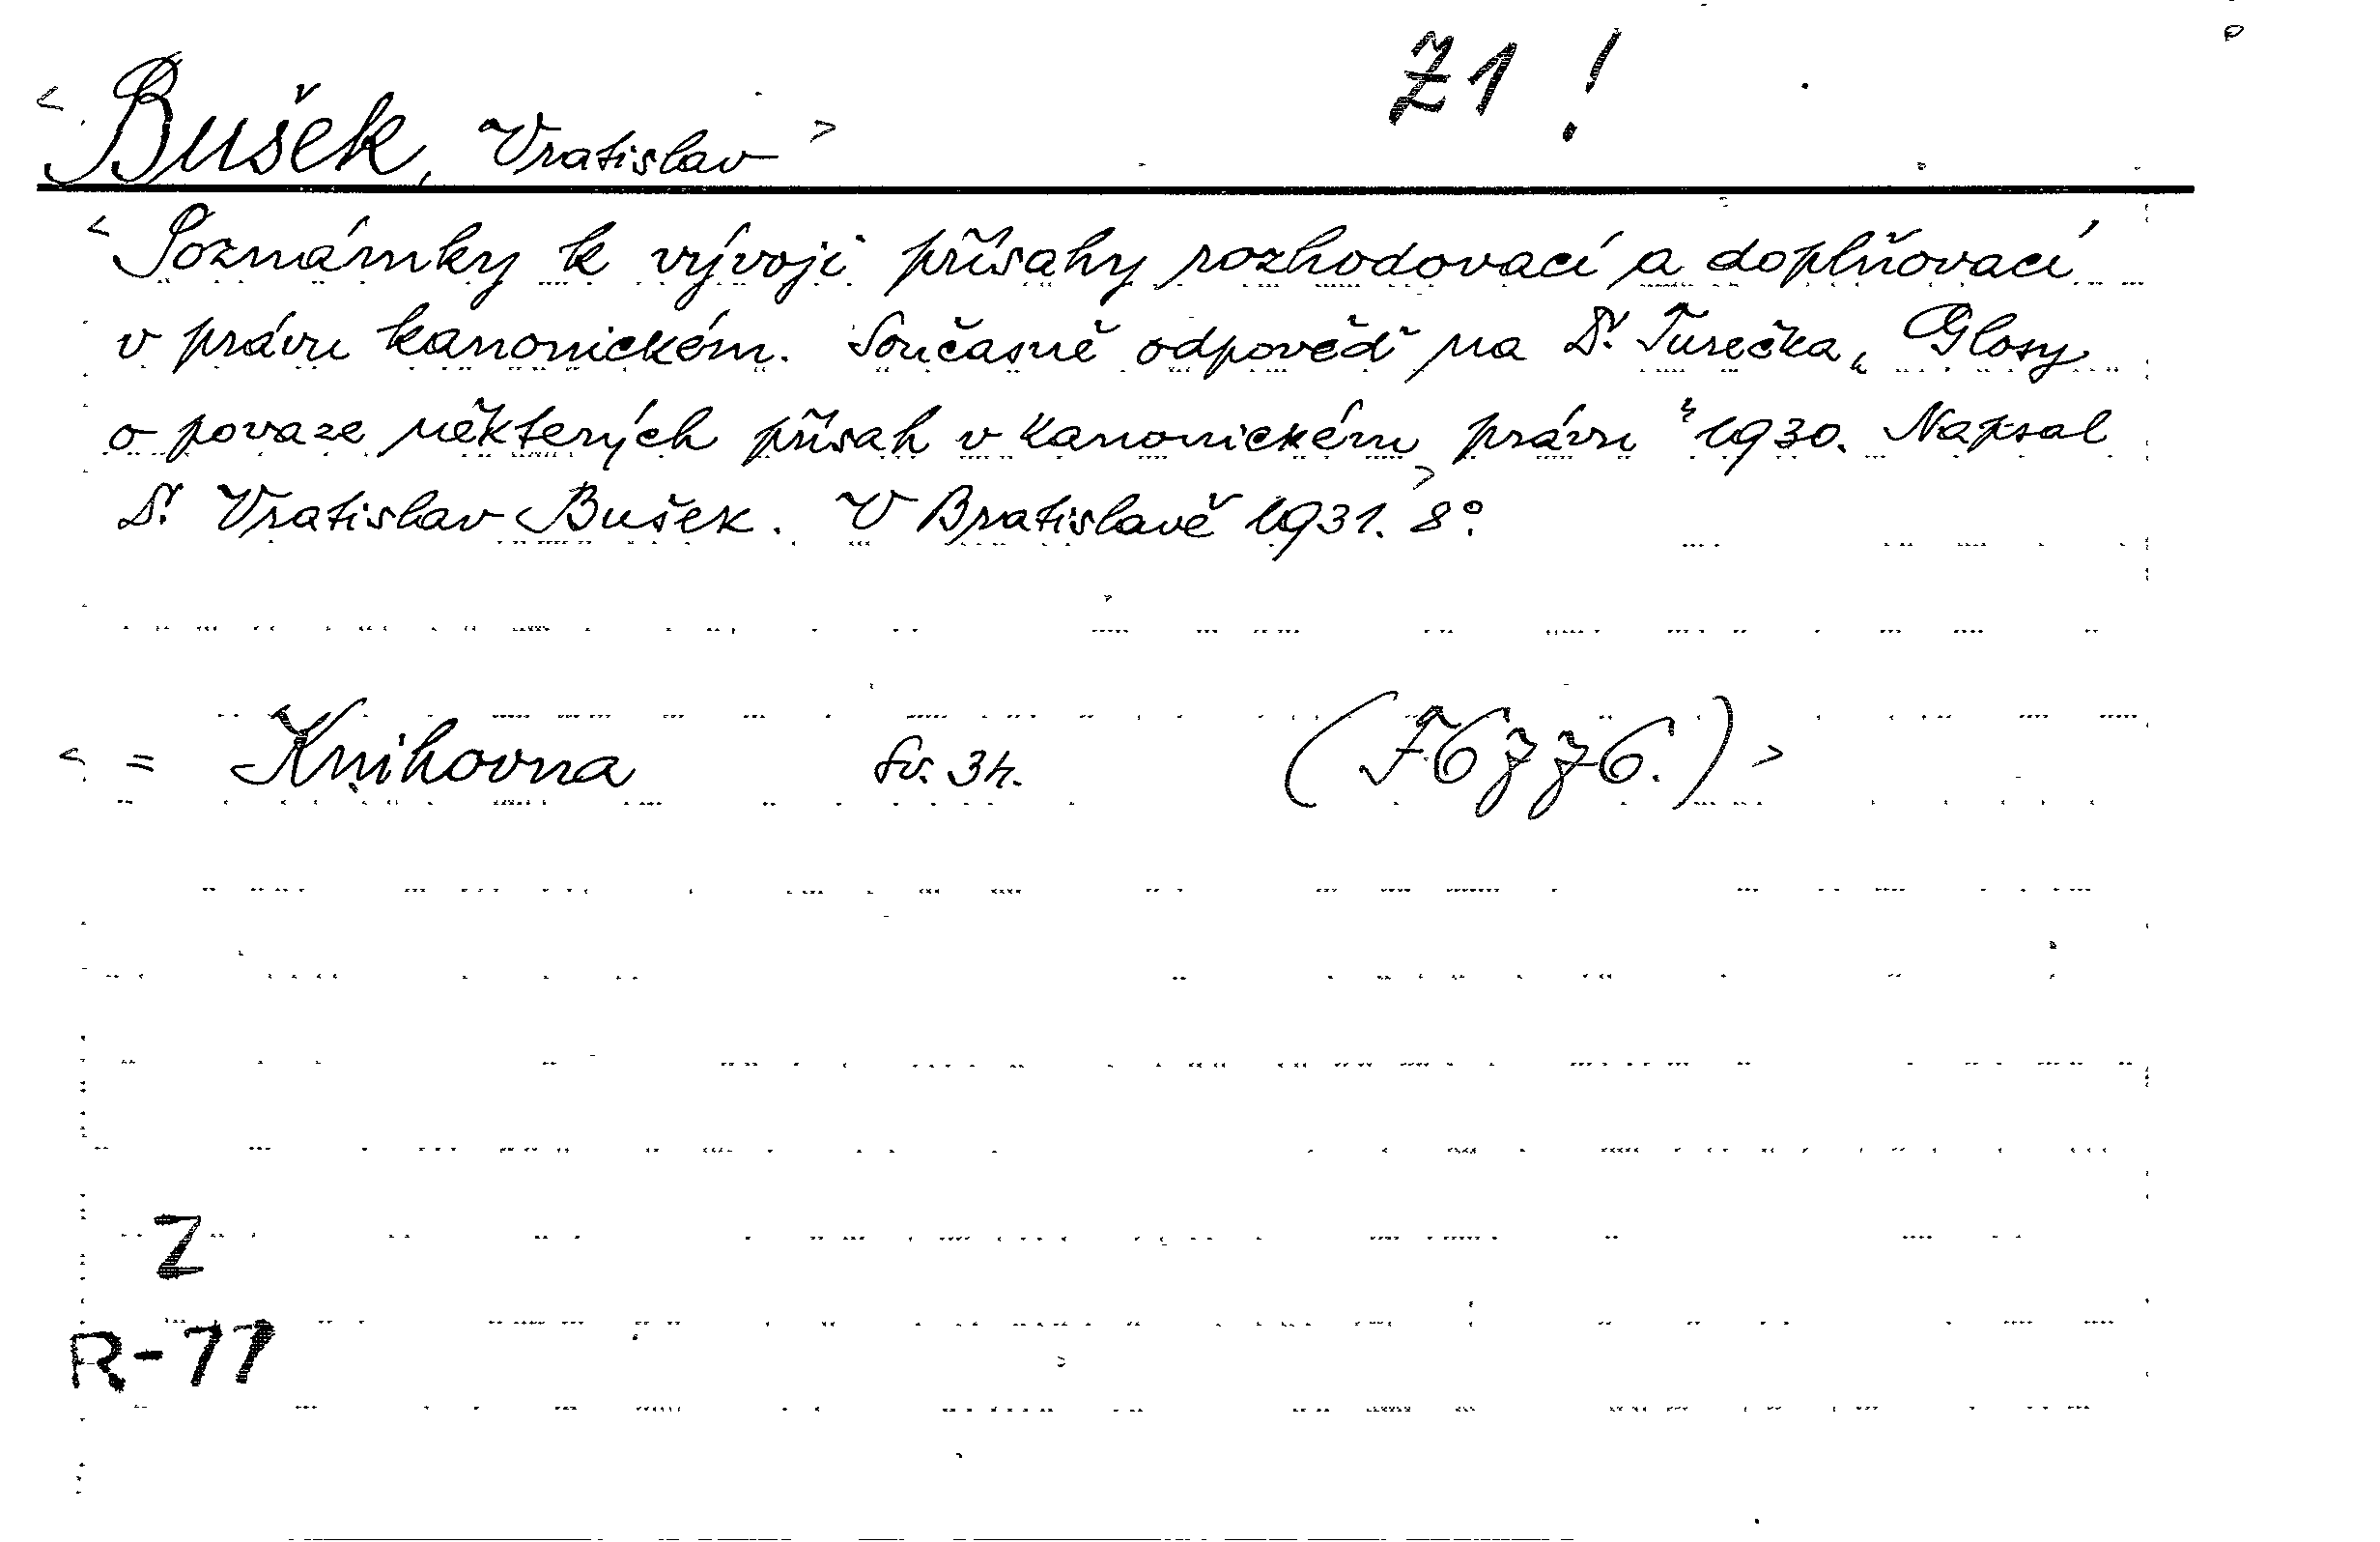 Z1!
< Bušek, Vratislav >
< Poznámky k vývoji přísahy rozhodovací a doplňovací
v právu kanonickém. Současně odpověď na Dr. Turečka „Glosy
o povaze některých přísah v kanonickém právu“ 1930. Napsal
Dr. Vratislav Bušek. V Bratislavě 1931. > 8°.
< = Knihovna Sv. 34. (F6776.) >
Z
R-77